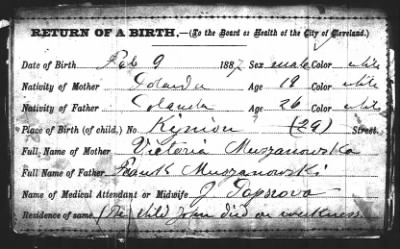 RETURN OF A BIRTH,—(To the Board of Health of the City of Cleveland.)
Date of Birth Feb 9 1887 Sex male Color white
Nativity of Mother Polander Age 19 Color white
Nativity of Father Polander Age 26 Color white
Place of Birth (of child.) No Kynion (29) Street.
Full Name of Mother Victoria Muszanowska
Full Name of Father Frank Muszanowski
Name of Medical Attendant or Midwife J Popsrova
Residence of same (The child John died on weakness